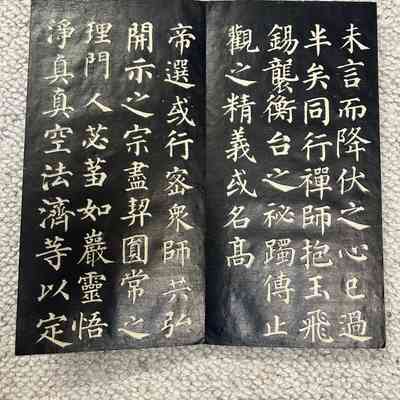 未言而降伏之心已過
半矣同行禪師抱玉飛
錫襲衡台之祕躅傳止
觀之精義或名高
帝選或行密衆師共弘
開示之宗盡契圓常之
理門人苾蒭如巖靈悟
淨真真空法濟等以定